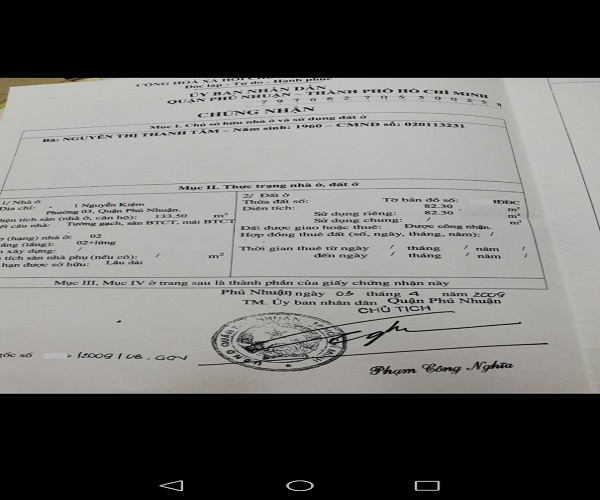 CỘNG HOÀ XÃ HỘI
Độc lập - Tự do - Hạnh phúc
ỦY BAN NHÂN DÂN
QUẬN PHÚ NHUẬN – THÀNH PHỐ HỒ CHÍ MINH
CHỨNG NHẬN
Mục I. Chủ sở hữu nhà ở và sử dụng đất ở
Bà: NGUYỄN THỊ THANH TÂM – Năm sinh: 1960 – CMND số: 020113231
Mục II. Thực trạng nhà ở, đất ở
1/ Nhà ở
Địa chỉ: Nguyễn Kiệm
Phường 03, Quận Phú Nhuận.
Diện tích sàn (nhà ở, căn hộ): 133.50 m²
Kết cấu nhà: Tường gạch, sàn BTCT, mái BTCT
(hạng) nhà ở: 02
tầng (tầng): 02+lửng
xây dựng: /
tích sàn nhà phụ (nếu có): / m²
hạn được sở hữu: Lâu dài
2/ Đất ở
Thửa đất số: Tờ bản đồ số: BĐĐC
Diện tích: 82.30 m²
Sử dụng riêng: 82.30 m²
Sử dụng chung: / m²
Đất được giao hoặc thuê: Được công nhận.
Hợp đồng thuê đất (số, ngày, tháng, năm): /
Thời gian thuê từ ngày / tháng / năm /
đến ngày / tháng / năm /
Mục III, Mục IV ở trang sau là thành phần của giấy chứng nhận này
Phú Nhuận ngày 03 tháng 4 năm 2009
TM. Ủy ban nhân dân Quận Phú Nhuận
CHỦ TỊCH
gốc số /2009/UB.GCN
Phạm Công Nghĩa